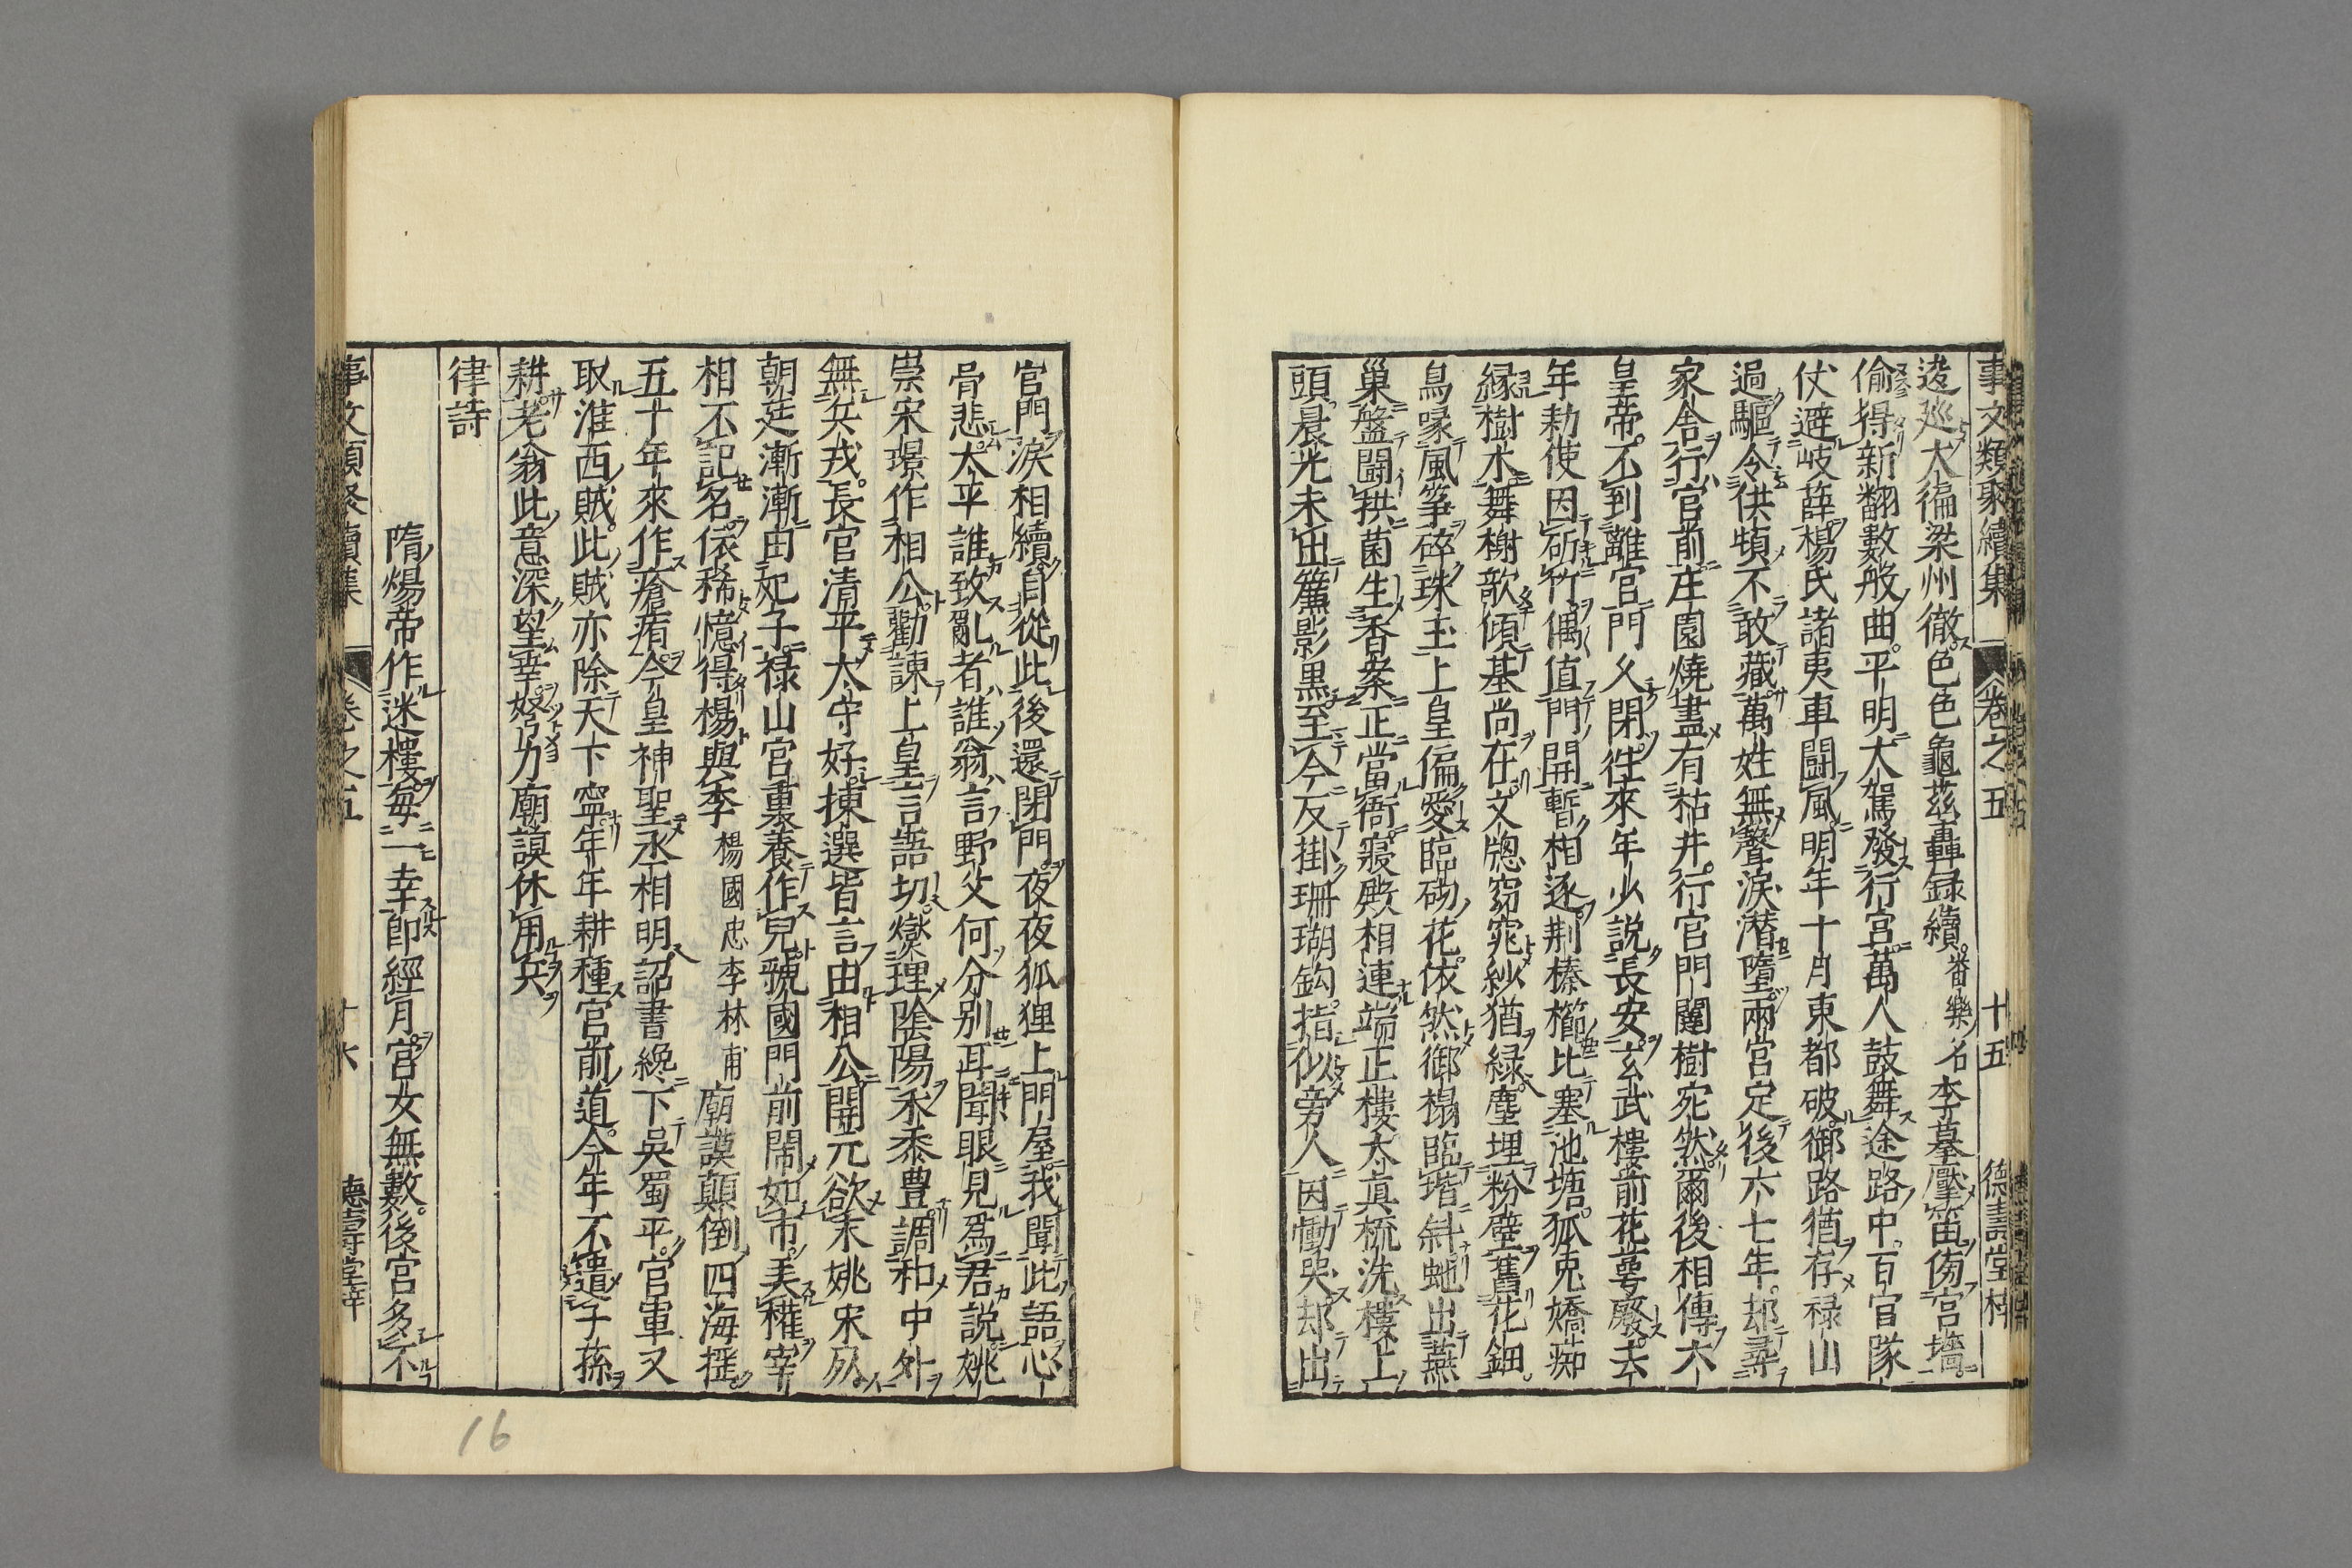 事文類聚續集 卷之五 十五 德壽堂梓
逡廵大徧梁州徹色色龜茲轟録續番樂名李暮壓笛傍宮墻
偷得新翻數般曲平明大駕發行宮萬人鼓舞途路中百官隊
仗避岐薛楊氏諸夷車闘風明年十月東都破御路猶存禄山
過驅令供頓不敢藏萬姓無聲淚潛墮兩宮定後六七年却尋
家舎行宮前庄園燒盡有枯井行宮門闥樹宛然爾後相傳六
皇帝不到離宮門乆閉徃來年少說長安玄武樓前花萼廢去
年勅使因斫竹偶值門開暫相逐荆榛櫛比塞池塘狐兎嬌痴
緣樹木舞榭歌傾基尚在文牕窈窕紗猶緑塵埋粉壁舊花鈿
鳥啄風筝碎珠玉上皇偏愛臨砌花依然御榻臨堦斜虵出燕
巢盤闘拱菌生香案正當衙寢殿相連端正樓太真梳洗樓上
頭晨光未出簾影黑至今反掛珊瑚鈎指似旁人因慟哭却出
宮門淚相續自從此後還閉門夜夜狐狸上門屋我聞此語心
骨悲太平誰致亂者誰翁言野父何分别耳聞眼見爲君説姚
崇宋璟作相公勸諫上皇言語切爕理隂陽禾黍豊調和中外
無兵戎長官清平太守好揀選皆言由相公開元欲末姚宋㱙
朝廷漸漸由妃子禄山宮裏養作兒虢國門前閙如市美權宰
相不記名依稀憶得楊與李楊國忠李林甫廟謨顛倒四海揺
五十年來作瘡痏今皇神聖丞相明詔書纔下吳蜀平官軍又
取淮西賊此賊亦除天下寧年年耕種宮前道今年不遣子孫
耕老翁此意深望幸努力廟謨休用兵
律詩
隋煬帝作迷樓每一幸即經月宮女無數後宮多不
事文類聚續集 卷之五 十六 德壽堂梓
16